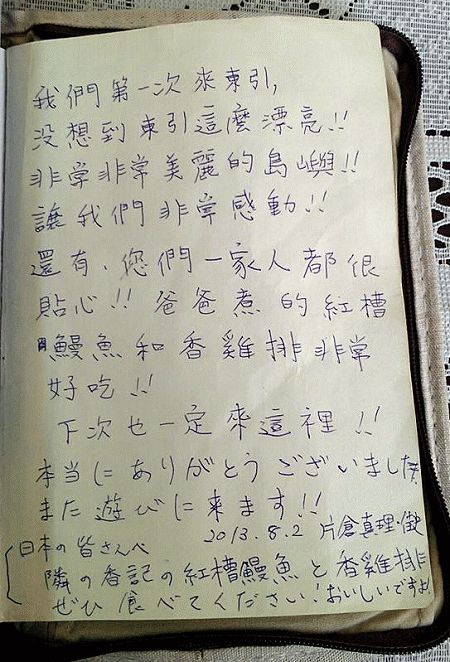 我們第一次來東引,
没想到東引這麼漂亮!!
非常非常美麗的島嶼!!
讓我們非常感動!!
還有、您們一家人都很
貼心!! 爸爸煮的紅槽
鰻魚和香雞排非常
好吃!!
下次也一定來這裡!!
本当にありがとうございました。
また遊びに来ます!!
2013.8.2 片倉真理・
日本の皆さんへ
隣の香記の紅槽鰻魚と香雞排
ぜひ食べてください!おいしいですよ